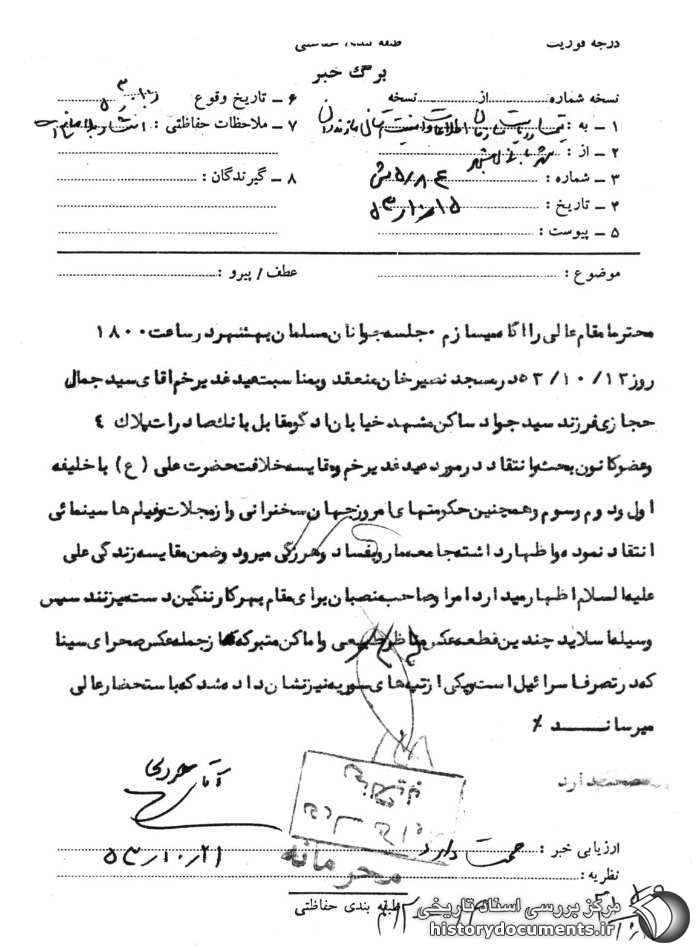 درجه فوریت
طبقه بندی حفاظتی
برگ خبر
نسخه شماره ............ از ............ نسخه
۱ ـ به : تیمسار ریاست سازمان اطلاعات و امنیت ساری مازندران
۲ ـ از : شهربانی بهشهر
۳ ـ شماره : ۵/۸۶ش
۴ ـ تاریخ : ۵۳/۱۰/۱۵
۵ ـ پیوست :
۶ ـ تاریخ وقوع
۷ ـ ملاحظات حفاظتی : انتشار بلامانع است
۸ ـ گیرندگان :
موضوع :
عطف / پیرو :
محترما مقام عالی را آگاه میسازم ۰ جلسه جوانان مسلمان بهشهر در ساعت ۱۸۰۰
روز ۱۳/ ۱۰/ ۵۳ در مسجد نصیرخان منعقد و بمناسبت عید غدیر خم اقای سید جمال
حجازی فرزند سید جواد ساکن مشهد خیابان ادگو مقابل بانک صادرات پلاک ۴
وعضو کانون بحث و انتقاد در مورد عید غدیر خم ومقایسه خلافت حضرت علی (ع) با خلیفه
اول ودوم وسوم وهمچنین حکومتهای امروز جهان سخنرانی واز مجلات وفیلم ها سینمائی
انتقاد نموده واظهار داشته جامعه ما روبفساد وهرزگی میرود وضمن مقایسه زندگی علی
علیه السلام اظهار میدارد امرا وصاحب منصبان برای مقام بهر کار ننگین دست میزنند سپس
وسیله اسلاید چندین قطعه عکس مناظر طبیعی واماکن متبرکه که از جمله عکس صحرای سینا
که در تصرف اسرائیل است ویکی از تپه های سوریه نیز نشان داده شد که باستحضار عالی
میرساند ٪
صحت دارد
ارزیابی خبر : صحت دارد
۵۳/۱۰/۲۱
نظریه :
محرمانه
طبقه بندی حفاظتی
مرکز بررسی اسناد تاریخی
historydocuments.ir